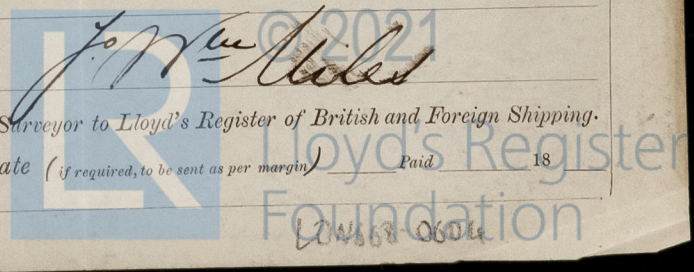 © 2021
Jo Wm Miles
Surveyor to Lloyd's Register of British and Foreign Shipping.
ate (if required, to be sent as per margin) Paid 18
LR
Lloyd's Register
Foundation
LDN668-0604